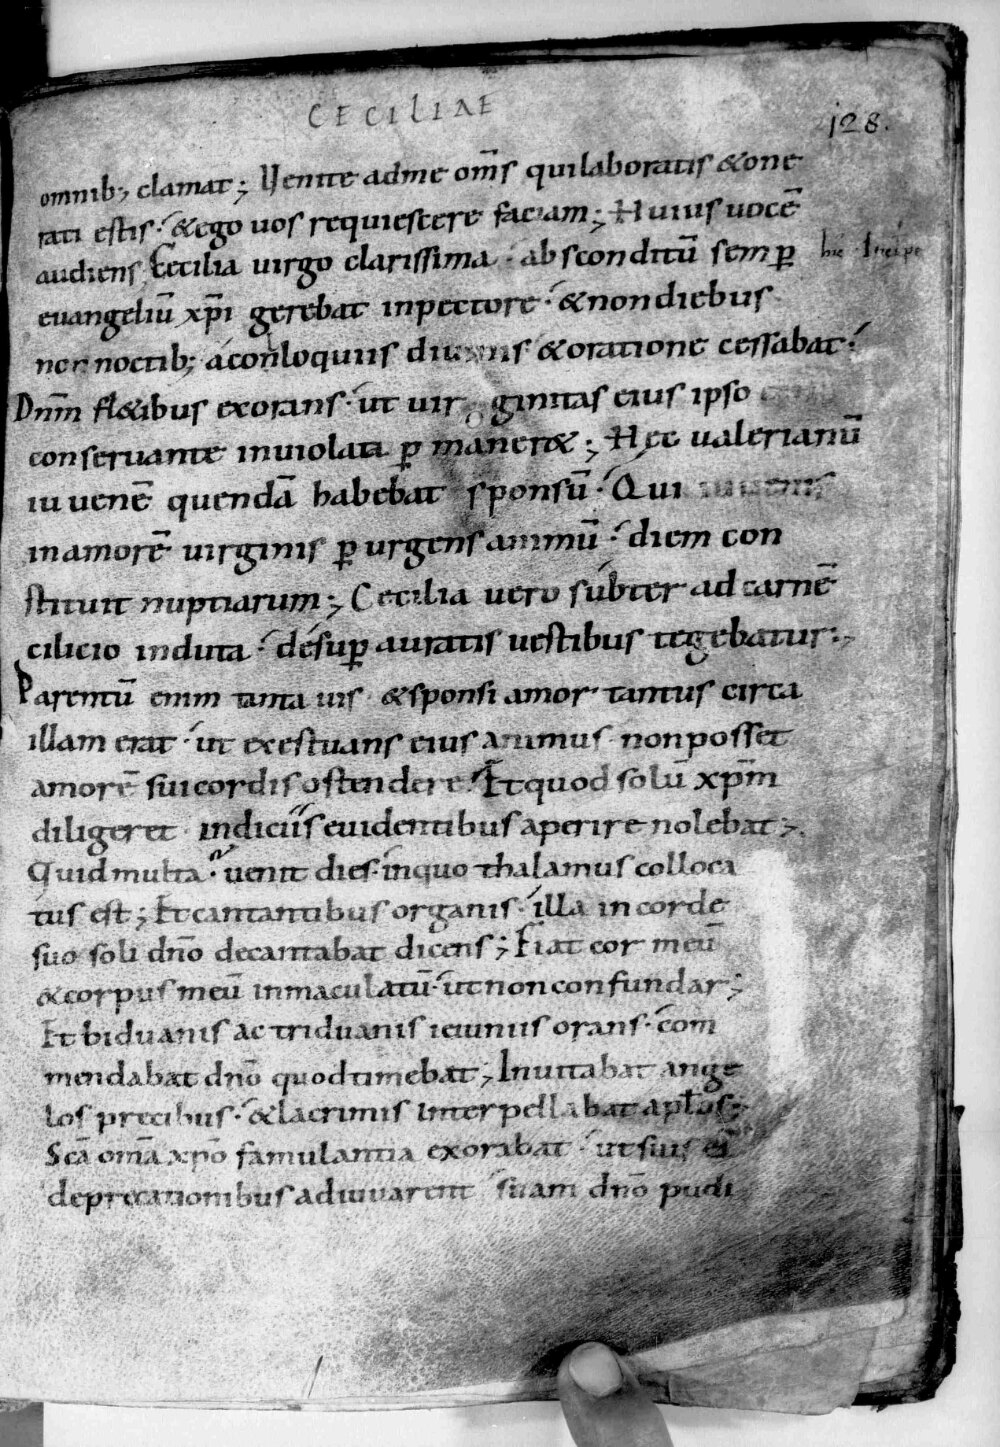 CECILIAE
128.
omnib; clamat; Uenite adme om̄s quilaboratis &one
rati estis· &ego uos requiescere faciam; Huius uocē
audiens Cecilia uirgo clarissima· absconditū semp̲
hic Incipe
euangeliū xp̄i gerebat inpectore· &nondiebus
non noctib; aconloquiis diuinis &oratione cessabat·
Dnm̄ fl&ibus exorans· ut uirginitas eius ipso
conseruante inuiolata p̲maner&; Hec ualerianū
iuuenē quendā habebat sponsū· Qui iuuenis
inamorē uirginis p̲urgens animū· diem con
stituit nuptiarum; Cecilia uero subter ad carnē
cilicio induta· desup̲ auratis uestibus tegebatur;
Parentū enim tanta uis &sponsi amor· tantus circa
illam erat· ut exestuans eius animus nonposset
amorē suicordis ostendere· Etquod solū xp̄m
diligeret indiciis euidentibus aperire nolebat;
Quid multa· uenit dies· inquo thalamus colloca
tus est; Et cantantibus organis· illa in corde
suo soli dn̄o decantabat dicens; Fiat cor meū
&corpus meū inmaculatū· ut non confundar;
Et biduanis ac triduanis ieiuniis orans· com
mendabat dn̄o quodtimebat; Inuitabat ange
los precibus· &lacrimis interpellabat apl̄os;
Scā omā xp̄o famulantia exorabat· ut suis eā
deprecationibus adiuuarent suam dn̄o pudi